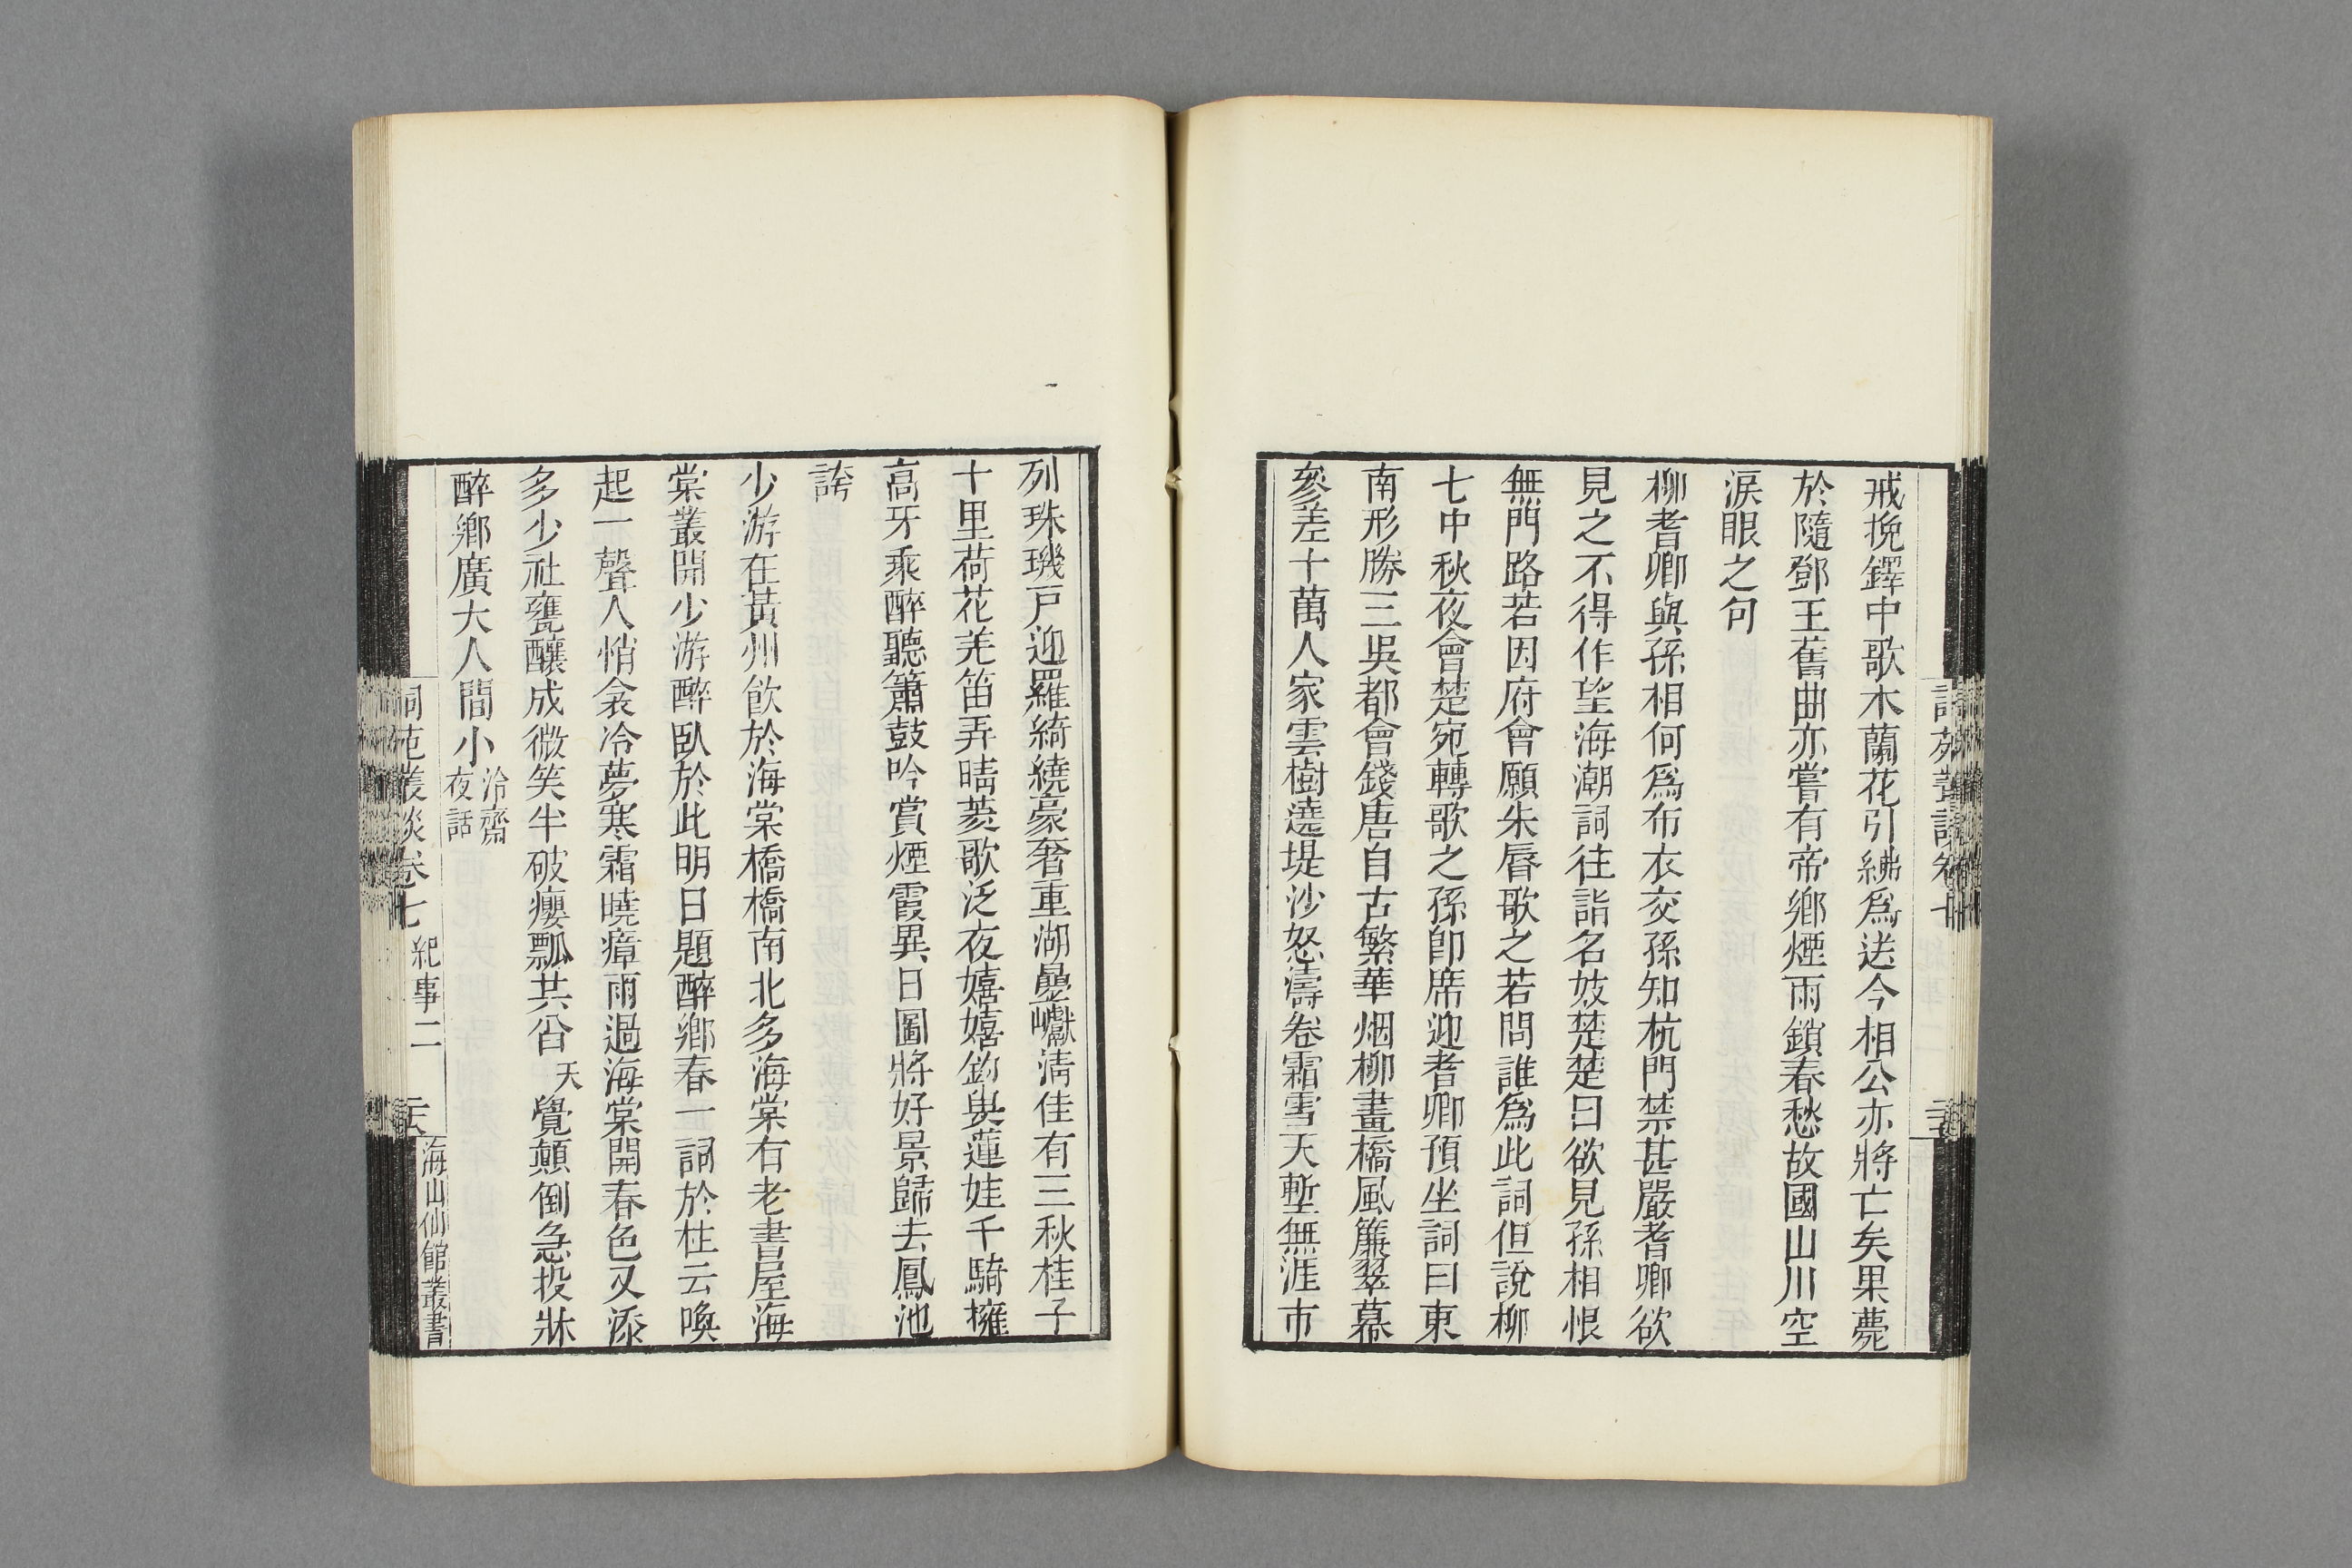 戒挽鐸中歌木蘭花引紼爲送今相公亦將亡矣果薨
於隨鄧王舊曲亦嘗有帝鄉煙雨鎖春愁故國山川空
淚眼之句
柳耆卿與孫相何爲布衣交孫知杭門禁甚嚴耆卿欲
見之不得作望海潮詞往詣名妓楚楚曰欲見孫相恨
無門路若因府會願朱脣歌之若問誰爲此詞但說柳
七中秋夜會楚宛轉歌之孫卽席迎耆卿預坐詞曰東
南形勝三吳都會錢唐自古繁華烟柳畫橋風簾翠幕
參差十萬人家雲樹遶堤沙怒濤卷霜雪天塹無涯市
列珠璣戸迎羅綺繞豪奢重湖疊巘淸佳有三秋桂子
十里荷花羌笛弄晴菱歌泛夜嬉嬉釣叟蓮娃千騎擁
高牙乘醉聽簫鼓吟賞煙霞異日圖將好景歸去鳳池
誇
少游在黃州飮於海棠橋橋南北多海棠有老書屋海
棠叢開少游醉臥於此明日題醉鄉春一詞於柱云喚
起一聲人悄衾冷夢寒霜曉瘴雨過海棠開春色又添
多少社甕釀成微笑半破癭瓢共舀天覺顛倒急投牀
醉鄉廣大人間小冷齋夜話
詞苑叢談卷七 紀事二
海山仙館叢書